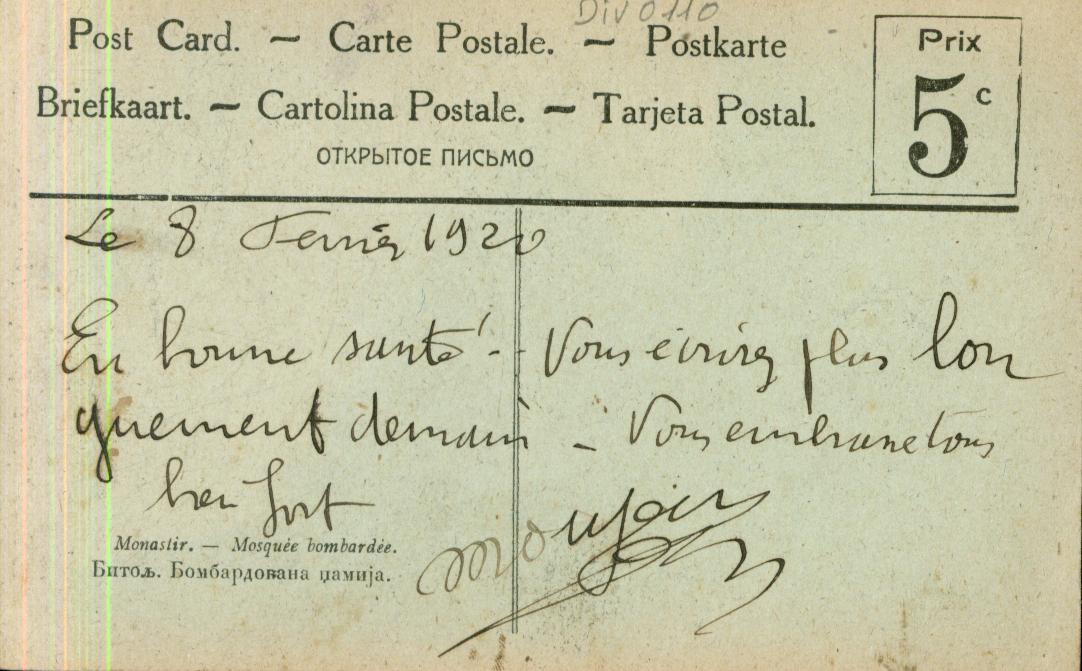 Div 0110
Post Card. — Carte Postale. — Postkarte
Prix
Briefkaart. — Cartolina Postale. — Tarjeta Postal.
5 c
ОТКРЫТОЕ ПИСЬМО
Le 8 Fevrier 1920
En bonne santé - Vous écrirez plus lon
guement demain - Vous embrasse tous
bien fort
Monastir. — Mosquée bombardée.
Битољ. Бомбардована џамија.